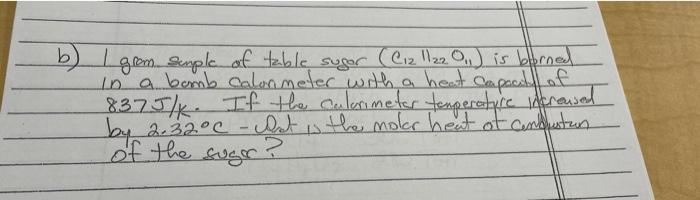 b) 1 gram sample of table sugar (C12 H22 O11) is borned
in a bomb calorimeter with a heat capacity of
837 J/K. If the calorimeter temperature increased
by 2.32°C - what is the molar heat of combustion
of the sugar?